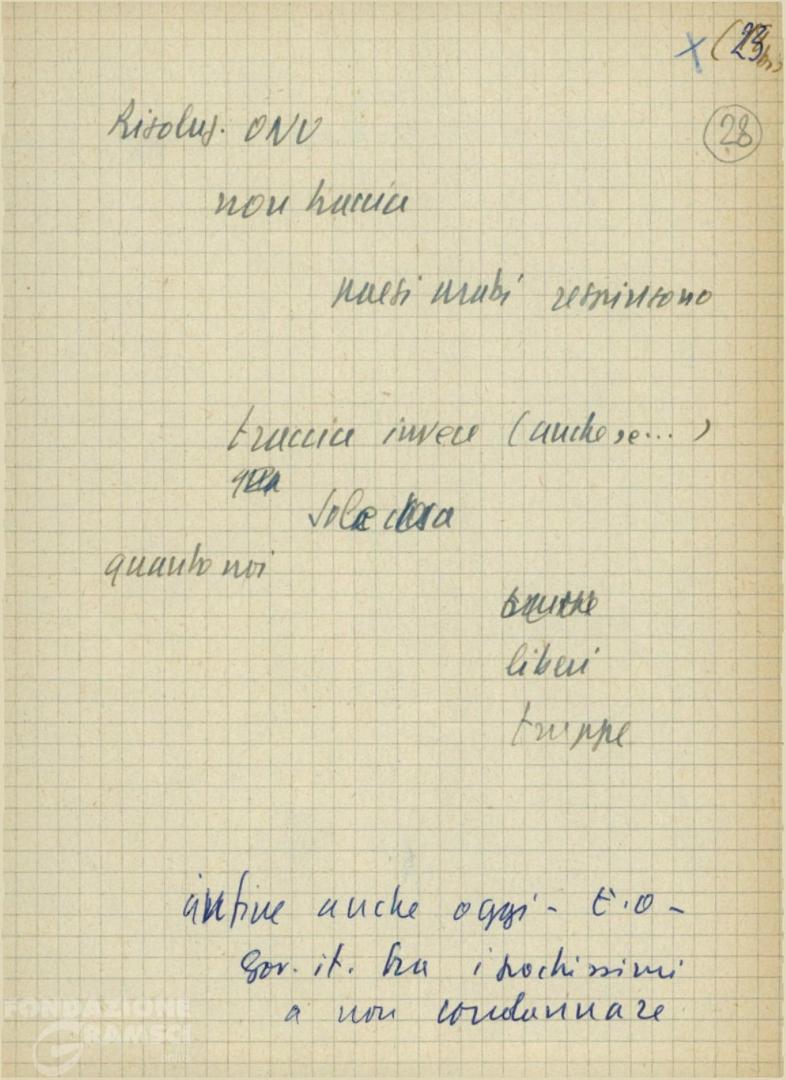 X (23 bis)
28
Risoluz. ONU
non traccia
paesi arabi respinsono
traccia invece (anche se...)
sola cosa
quanto noi
truppe
liberi
truppe
infine anche oggi - E.O -
Gov. it. tra i pochissimi
a non condannare
FONDAZIONE
GRAMSCI